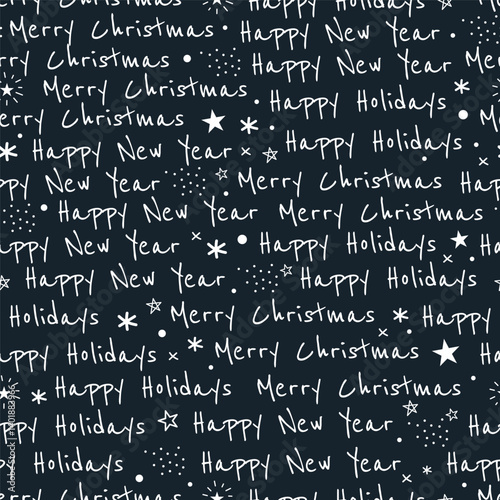 Merry Christmas Happy New Year
Merry Christmas Happy New Year
Merry Christmas Happy Holidays Me
erry Christmas Happy Holidays
Happy New Year Merry Christmas
py New Year Merry Christmas
Happy New Year Merry Christmas
appy New Year Happy Holidays
Happy New Year Happy Holidays
Holidays Merry Christmas Happy
ppy Holidays Merry Christmas
Happy Holidays Merry Christmas
ppy Holidays Happy New Year
Holidays Happy New Year
Adobe Stock